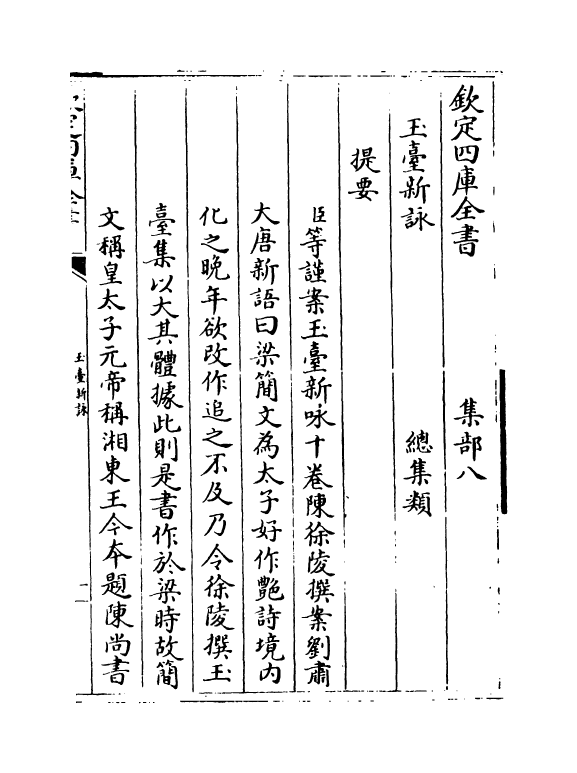 欽定四庫全書　集部八
玉臺新詠　總集類
提要
臣等謹案玉臺新咏十卷陳徐陵撰案劉肅
大唐新語曰梁簡文為太子好作艶詩境内
化之晚年欲改作追之不及乃令徐陵撰玉
臺集以大其體據此則是書作於梁時故簡
文稱皇太子元帝稱湘東王今本題陳尚書
玉臺新詠